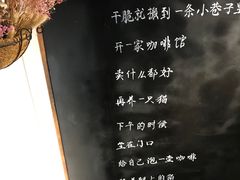 干脆就搬到一条小巷子里
开一家咖啡馆
卖什么都好
再养一只猫
下午的时候
坐在门口
给自己泡一壶咖啡